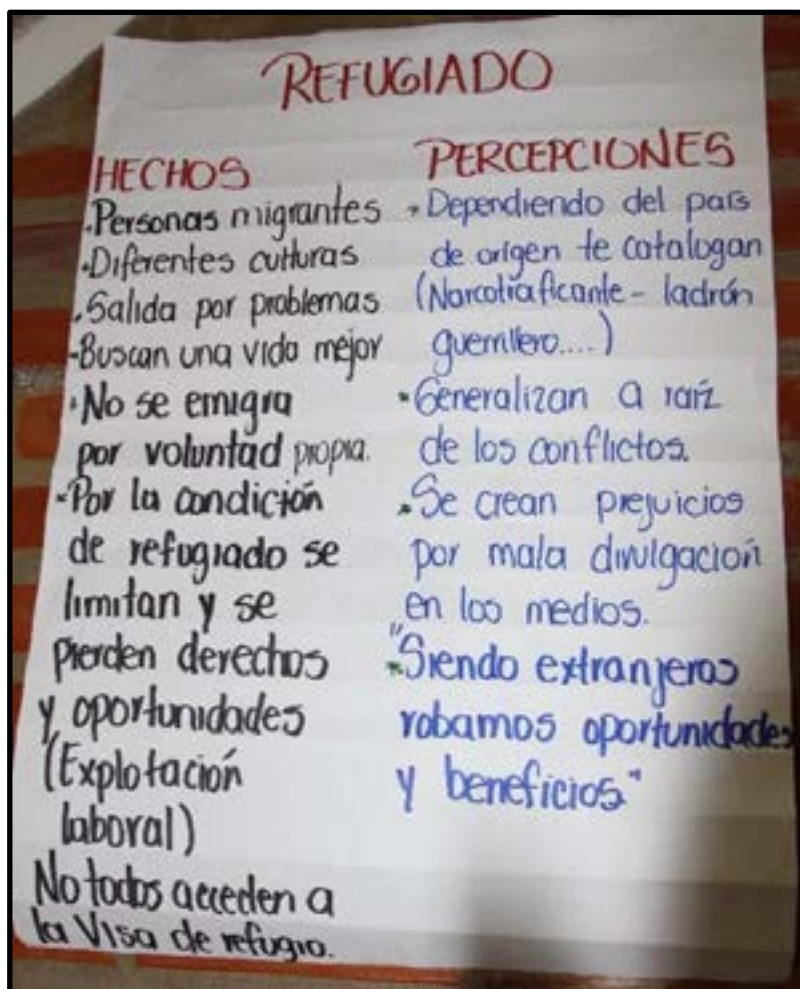 REFUGIADO
HECHOS
.Personas migrantes
.Diferentes culturas
.Salida por problemas
-Buscan una vida mejor
.No se emigra
por voluntad propia.
-Por la condición
de refugiado se
limitan y se
pierden derechos
y oportunidades
(Explotación
laboral)
No todos acceden a
la Visa de refugio.
PERCEPCIONES
.Dependiendo del pais
de origen te catalogan
(Narcotraficante - ladrón
guerrillero....)
.Generalizan a raíz
de los conflictos.
.Se crean prejuicios
por mala divulgación
en los medios.
."Siendo extranjeros
robamos oportunidades
y beneficios"